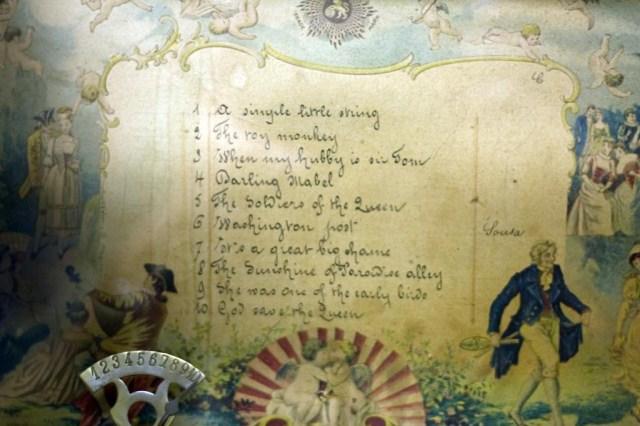 1 A simple little string
2 The toy monkey
3 When my hubby is sir Tom
4 Darling Mabel
5 The Soldiers of the Queen
6 Washington post Sousa
7 It's a great big shame
8 The Sunshine of Paradise alley
9 She was one of the early birds
10 God save the Queen
12345678910